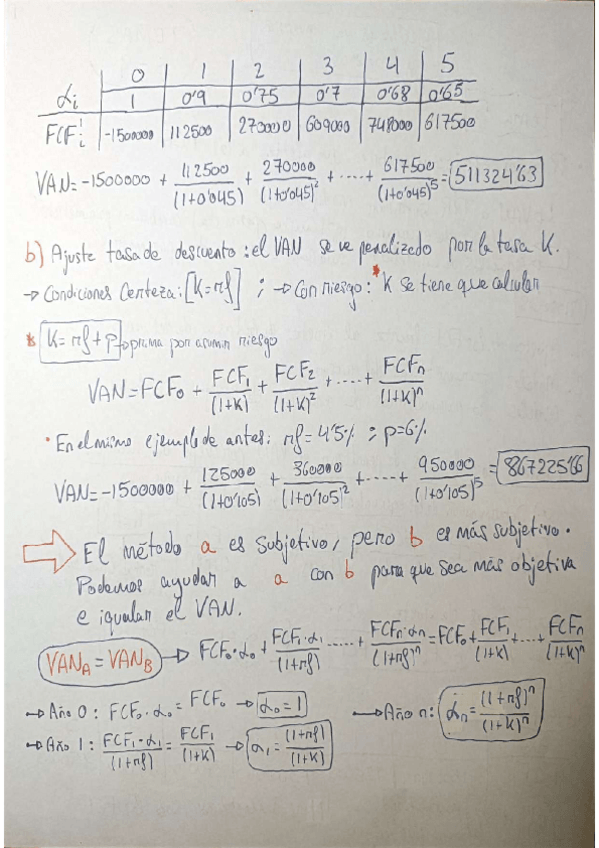 0 1 2 3 4 5
αi 1 0'9 0'75 0'7 0'68 0'65
FCFi' -1500000 112500 270000 609000 748000 617500
VAN= -1500000 + 112500/(1+0'045) + 270000/(1+0'045)² + ..... + 617500/(1+0'045)⁵ = 511324'63
b) Ajuste tasa de descuento: el VAN se ve penalizado por la tasa K.
→ Condiciones Certeza: [K=rf] ; → Con riesgo: * K se tiene que calcular
* K = rf + p → prima por asumir riesgo
VAN = FCF₀ + FCF₁/(1+K) + FCF₂/(1+K)² + ..... + FCFn/(1+K)ⁿ
• En el mismo ejemplo de antes: rf = 4'5% ; p=6%
VAN= -1500000 + 125000/(1+0'105) + 360000/(1+0'105)² + ..... + 950000/(1+0'105)⁵ = 867225'66
⇒ El método a es subjetivo, pero b es más subjetivo.
Podemos ayudar a a con b para que sea más objetiva
e igualar el VAN.
VAN_A = VAN_B → FCF₀·α₀ + FCF₁·α₁/(1+rf) ..... + FCFn·αn/(1+rf)ⁿ = FCF₀ + FCF₁/(1+K) + ... + FCFn/(1+K)ⁿ
→ Año 0: FCF₀·α₀ = FCF₀ → α₀ = 1
→ Año n: αn = (1+rf)ⁿ/(1+K)ⁿ
→ Año 1: FCF₁·α₁/(1+rf) = FCF₁/(1+K) → α₁ = (1+rf)/(1+K)